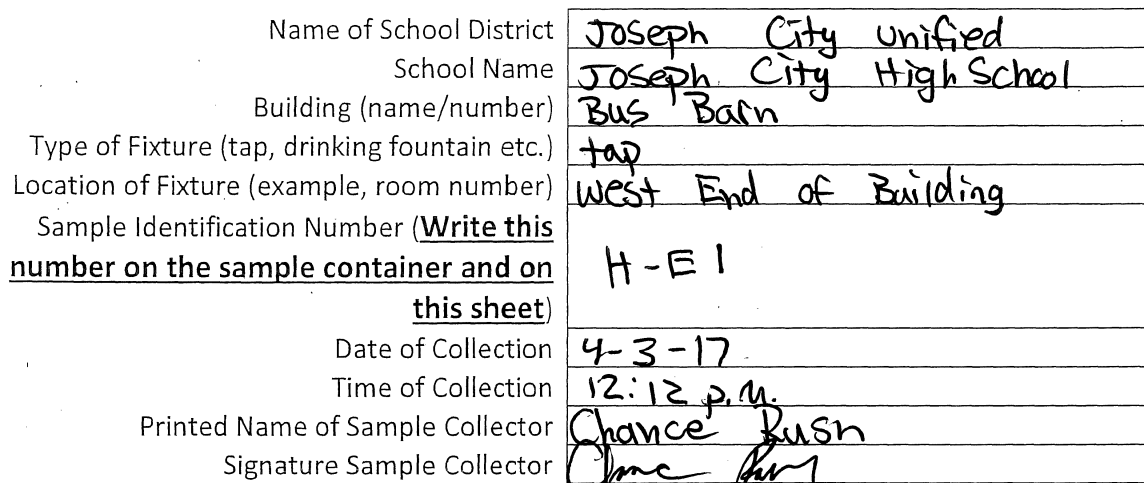 Name of School District Joseph City Unified
School Name Joseph City High School
Building (name/number) Bus Barn
Type of Fixture (tap, drinking fountain etc.) tap
Location of Fixture (example, room number) West End of Building
Sample Identification Number (Write this
number on the sample container and on H-E1
this sheet)
Date of Collection 4-3-17
Time of Collection 12:12 p.m.
Printed Name of Sample Collector Chance Rush
Signature Sample Collector